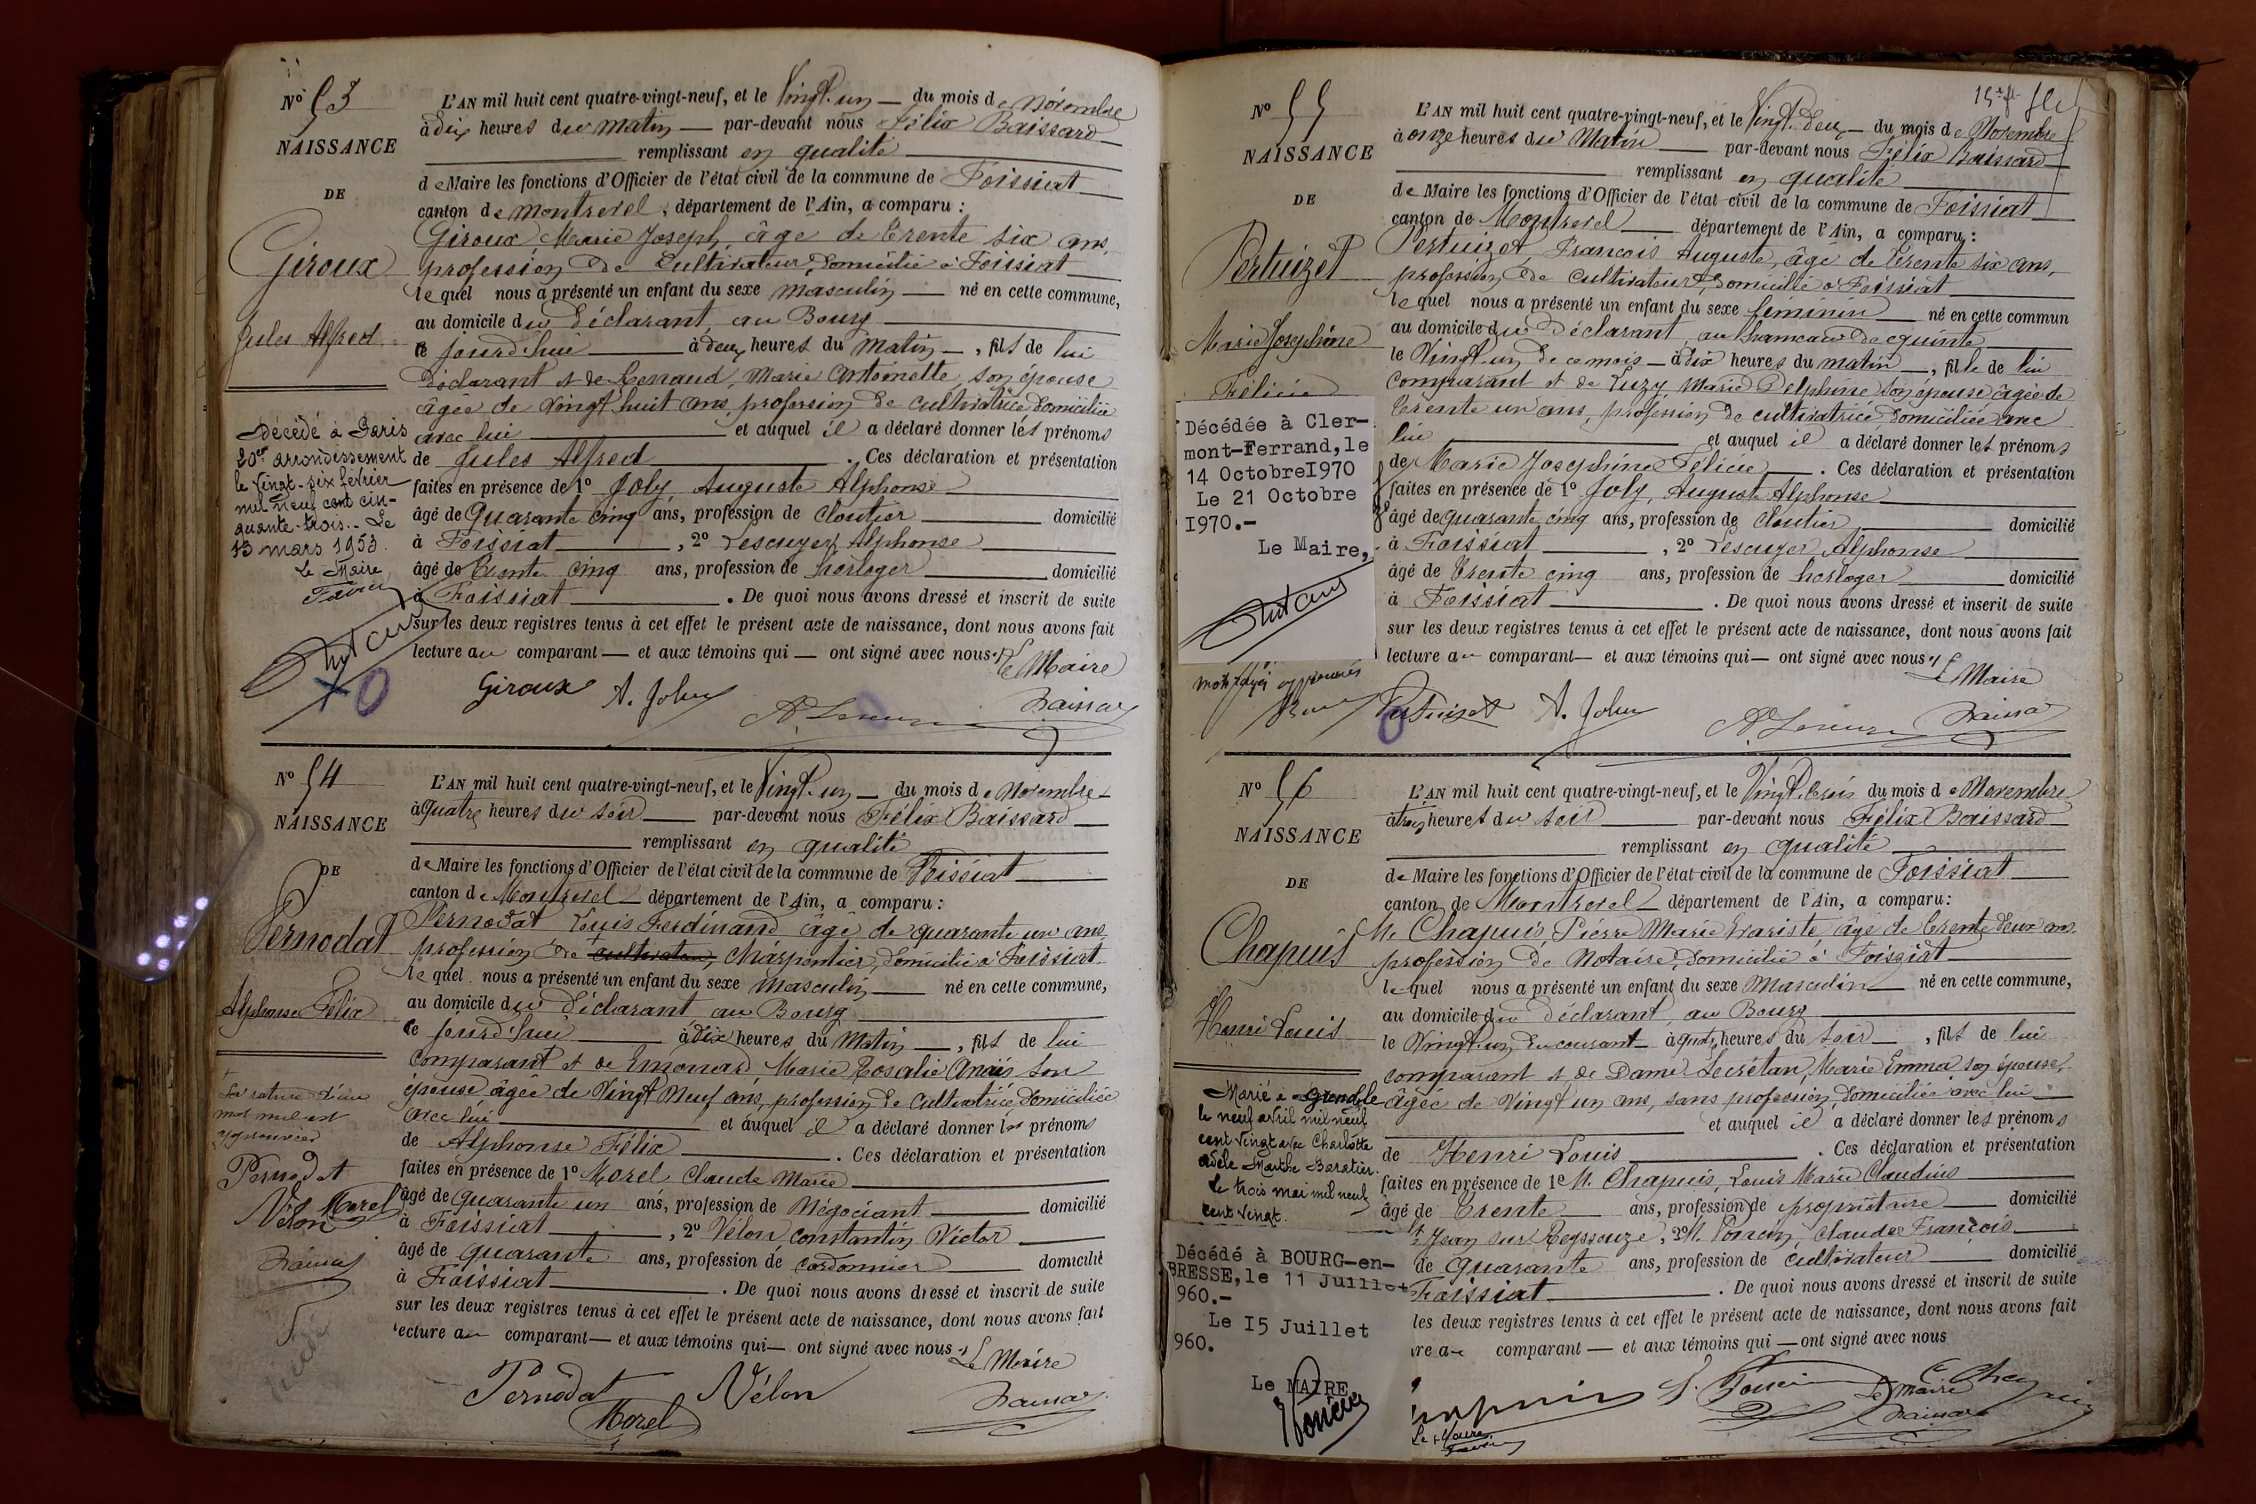 No 53
NAISSANCE
DE
Giroux
Jules Alfred
Décédé à Paris
20er arrondissement
le vingt-six février
mil neuf cent cin-
quante-trois.- Le
13 mars 1953.
Le Maire
L'AN mil huit cent quatre-vingt-neuf, et le Vingt-un du mois de Novembre
à dix heures du matin par-devant nous Félix Baissard
remplissant en qualité
de Maire les fonctions d'Officier de l'état civil de la commune de Foissiat
canton de Montrevel, département de l'Ain, a comparu :
Giroux Marie Joseph, âgé de trente six ans,
profession de Cultivateur, domicilié à Foissiat
lequel nous a présenté un enfant du sexe masculin né en cette commune,
au domicile du déclarant, au Bourg
ce jourd'hui à deux heures du matin, fils de lui
déclarant et de Renaud, Marie Antoinette, son épouse
âgée de Vingt huit ans, profession de cultivatrice domiciliée
avec lui et auquel il a déclaré donner les prénoms
de Jules Alfred. Ces déclaration et présentation
faites en présence de 1o Joly, Auguste Alphonse
âgé de Quarante cinq ans, profession de Cloutier domicilié
à Foissiat, 2o Lescuyer Alphonse
âgé de trente cinq ans, profession de horloger domicilié
à Foissiat. De quoi nous avons dressé et inscrit de suite
sur les deux registres tenus à cet effet le présent acte de naissance, dont nous avons fait
lecture au comparant et aux témoins qui ont signé avec nous.
Le Maire
Giroux A. Joly
No 54
NAISSANCE
DE
Pernodat
Alphonse Félix
La rature d'un
mot nul est
approuvée
Pernodat
Morel
Vélon
L'AN mil huit cent quatre-vingt-neuf, et le Vingt-un du mois de Novembre
à quatre heures du soir par-devant nous Félix Baissard
remplissant en qualité
de Maire les fonctions d'Officier de l'état civil de la commune de Foissiat
canton de Montrevel département de l'Ain, a comparu :
Pernodat Louis Ferdinand âgé de quarante un ans
profession de cultivateur, Charpentier, domicilié à Foissiat
lequel nous a présenté un enfant du sexe masculin né en cette commune,
au domicile du déclarant, au Bourg
ce jourd'hui à dix heures du matin, fils de lui
comparant et de Emonard, Marie Rosalie Anaïs son
épouse âgée de Vingt Neuf ans, profession de Cultivatrice, domiciliée
avec lui et auquel il a déclaré donner les prénoms
de Alphonse Félix. Ces déclaration et présentation
faites en présence de 1o Morel Claude Marie
âgé de quarante un ans, profession de Négociant domicilié
à Foissiat, 2o Vélon Constantin Victor
âgé de quarante ans, profession de cordonnier domicilié
à Foissiat. De quoi nous avons dressé et inscrit de suite
sur les deux registres tenus à cet effet le présent acte de naissance, dont nous avons fait
lecture au comparant et aux témoins qui ont signé avec nous
Le Maire
Pernodat Vélon
Morel
No 55
NAISSANCE
DE
Pertuizet
Marie Joséphine
Félicie
Décédée à Cler-
mont-Ferrand, le
14 Octobre I970
Le 21 Octobre
I970.-
Le Maire,
L'AN mil huit cent quatre-vingt-neuf, et le Vingt-deux du mois de Novembre
à onze heures du Matin par-devant nous Félix Baissard
remplissant en qualité
de Maire les fonctions d'Officier de l'état civil de la commune de Foissiat
canton de Montrevel département de l'Ain, a comparu :
Pertuizet, François Auguste, âgé de trente six ans,
profession de cultivateur, domicilié à Foissiat
lequel nous a présenté un enfant du sexe féminin né en cette commun
au domicile du déclarant, au hameau de
le Vingt un de ce mois à dix heures du matin, fille de lui
comparant et de Luzy, Marie Delphine son épouse âgée de
trente un ans, profession de cultivatrice domiciliée avec
lui et auquel il a déclaré donner les prénoms
de Marie Joséphine Félicie. Ces déclaration et présentation
faites en présence de 1o Joly, Auguste Alphonse
âgé de quarante cinq ans, profession de Cloutier domicilié
à Foissiat, 2o Lescuyer Alphonse
âgé de trente cinq ans, profession de horloger domicilié
à Foissiat. De quoi nous avons dressé et inscrit de suite
sur les deux registres tenus à cet effet le présent acte de naissance, dont nous avons fait
lecture au comparant et aux témoins qui ont signé avec nous
Le Maire
Pertuizet A. Joly
No 56
NAISSANCE
DE
Chapuis
Henri Louis
Marié à Grenoble
le neuf avril mil neuf
cent vingt avec Charlotte
Adèle Marthe Baratier.
Le trois mai mil neuf
cent vingt.
Décédé à BOURG-en-
BRESSE, le 11 Juillet
960.-
Le I5 Juillet
960.
Le MAIRE
L'AN mil huit cent quatre-vingt-neuf, et le Vingt-trois du mois de Novembre
à trois heures du soir par-devant nous Félix Baissard
remplissant en qualité
de Maire les fonctions d'Officier de l'état civil de la commune de Foissiat
canton de Montrevel département de l'Ain, a comparu :
Me Chapuis, Pierre Marie Evariste âgé de trente deux ans
profession de Notaire, domicilié à Foissiat
lequel nous a présenté un enfant du sexe Masculin né en cette commune,
au domicile du déclarant, au Bourg
le Vingt un du courant à quatre heures du soir, fils de lui
comparant et de Dame Lecrétan, Marie Emma son épouse,
âgée de Vingt un ans, sans profession, domiciliée avec lui
et auquel il a déclaré donner les prénoms
de Henri Louis. Ces déclaration et présentation
faites en présence de 1o M. Chapuis, Louis Marie Claudius
âgé de trente ans, profession de propriétaire domicilié
St Jean sur Reyssouze, 2o M. Poncin, Claude François
de quarante ans, profession de cultivateur domicilié
Foissiat. De quoi nous avons dressé et inscrit de suite
les deux registres tenus à cet effet le présent acte de naissance, dont nous avons fait
comparant et aux témoins qui ont signé avec nous
Le Maire